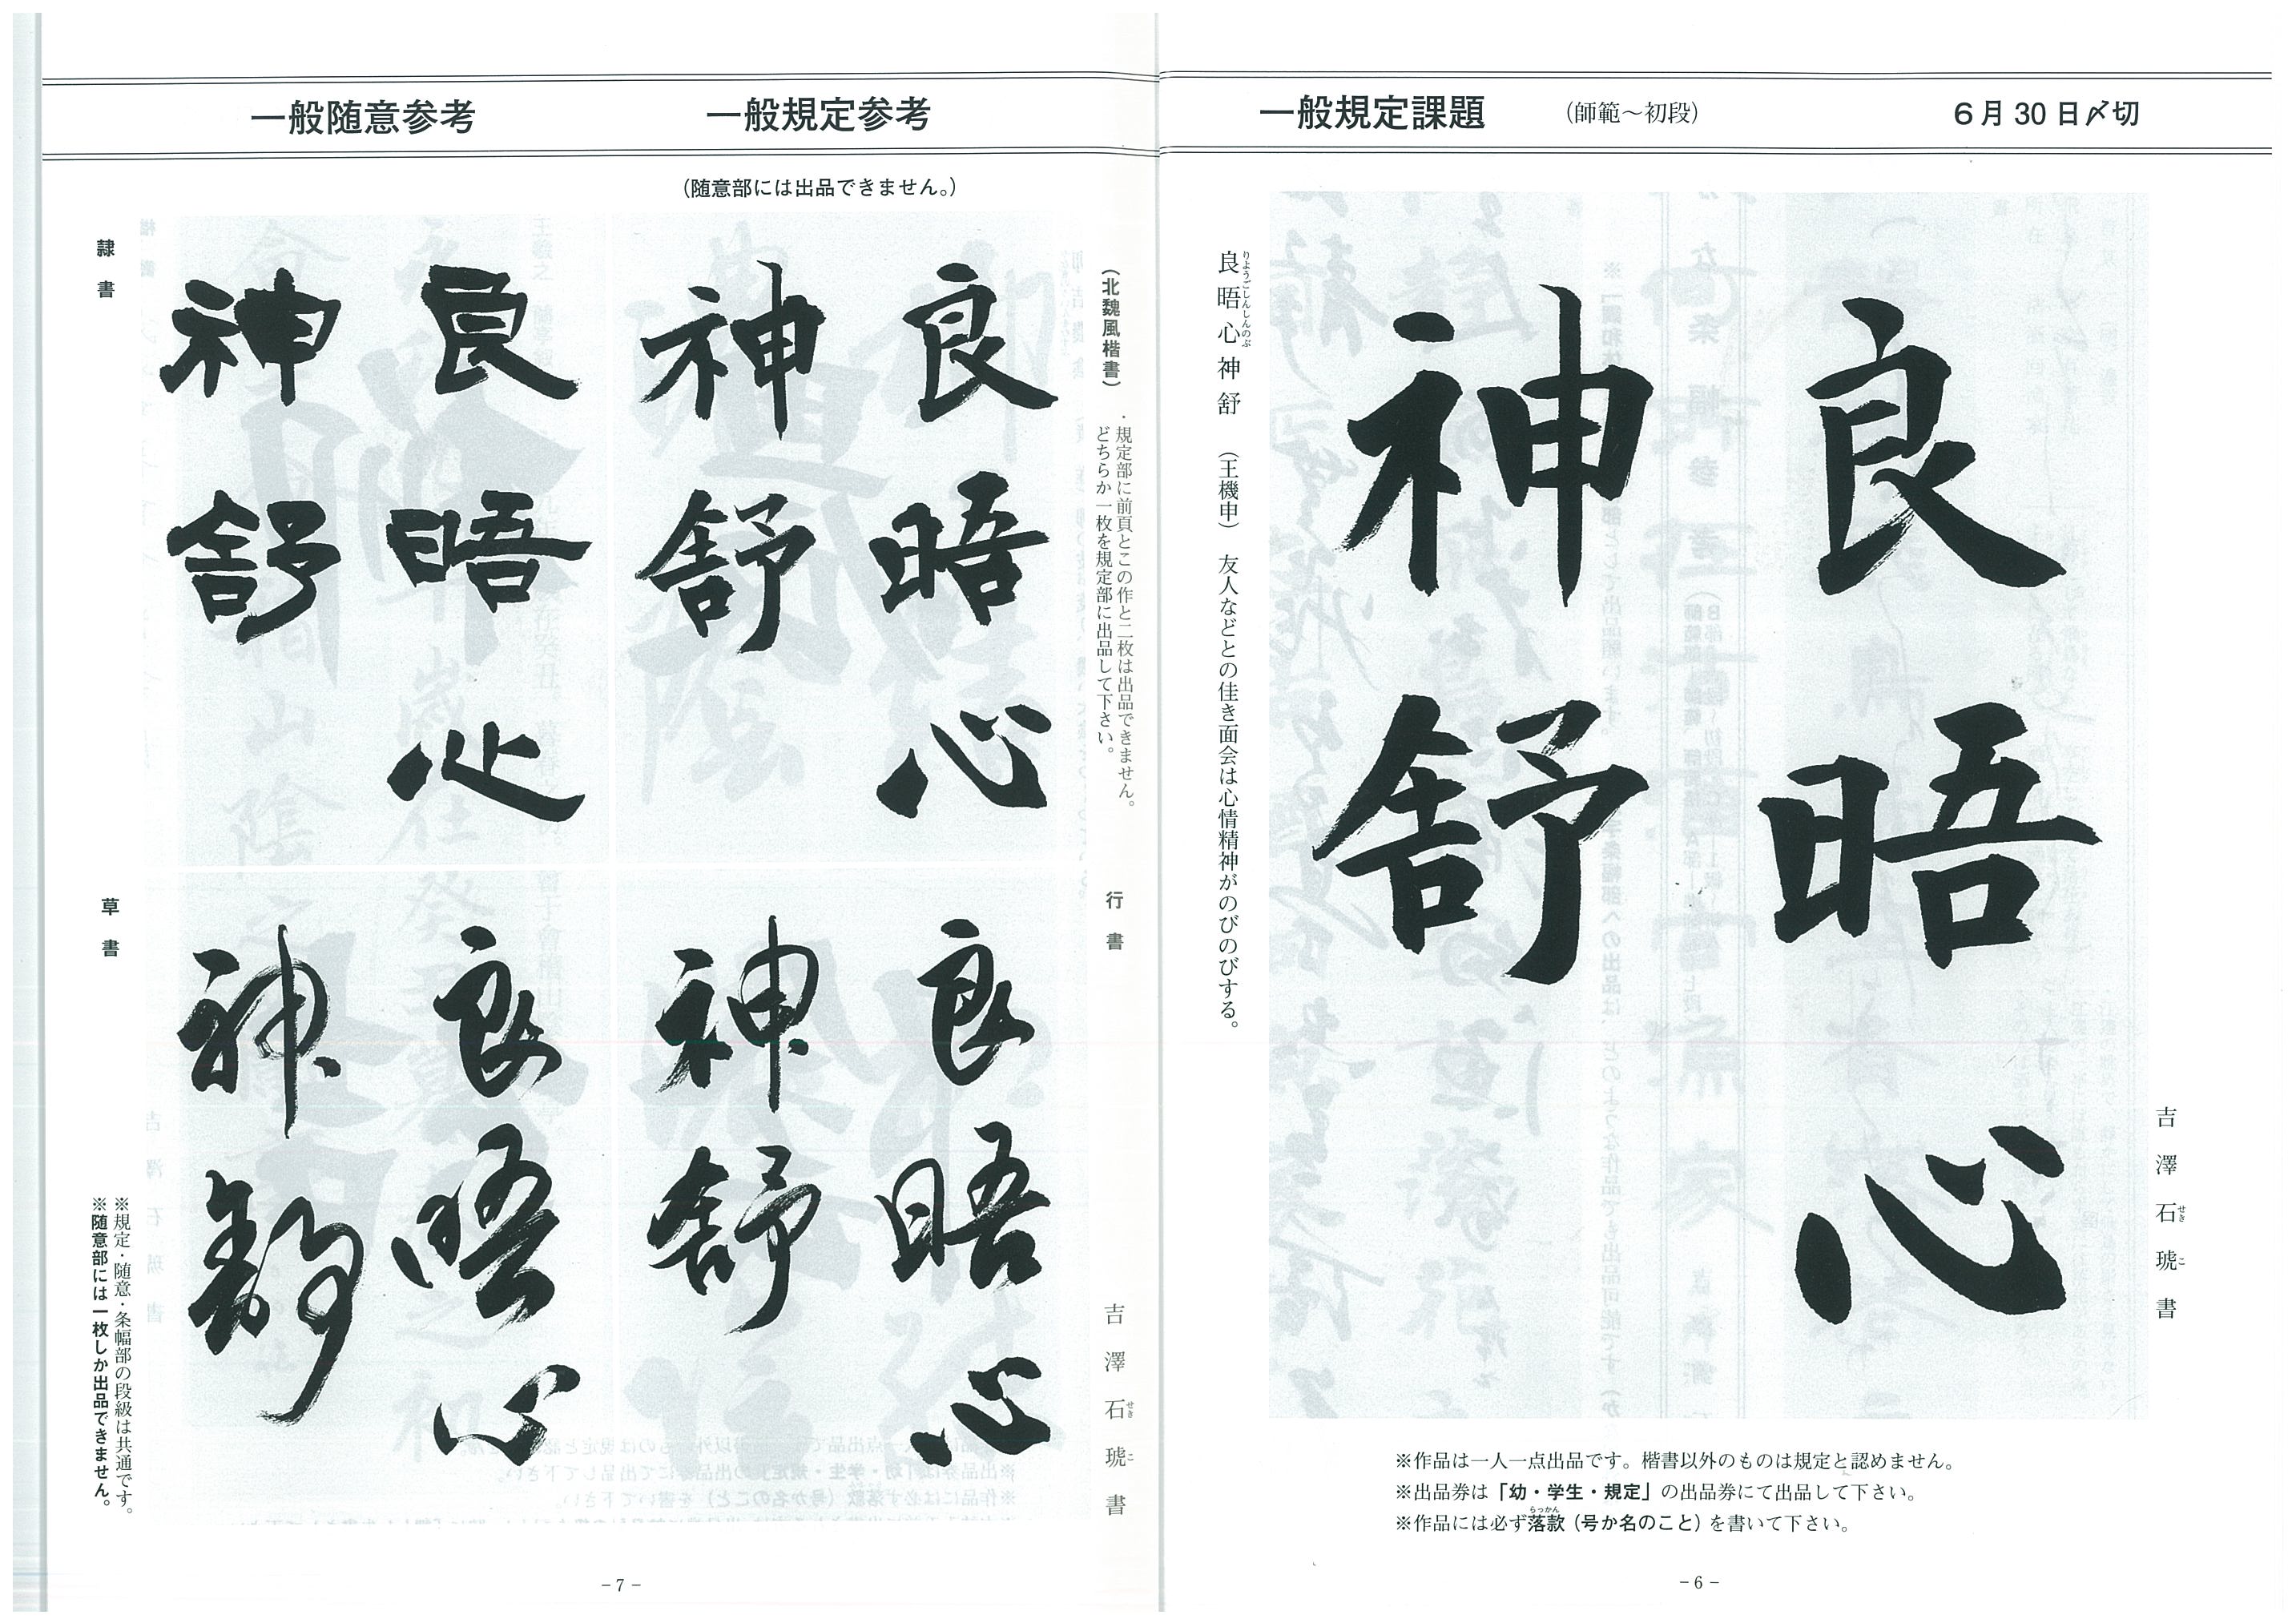 一般規定課題 (師範〜初段) 6月30日〆切
良晤心
神舒
吉澤石琥書
せきこ
良晤心神舒 (王機申) 友人などとの佳き面会は心情精神がのびのびする。
りようごしんしんのぶ
※作品は一人一点出品です。楷書以外のものは規定と認めません。
※出品券は「幼・学生・規定」の出品券にて出品して下さい。
※作品には必ず落款(号か名のこと)を書いて下さい。
らっかん
−6−
一般規定参考
(随意部には出品できません。)
(北魏風楷書)
・規定部に前頁とこの作と二枚は出品できません。
どちらか一枚を規定部に出品して下さい。
良晤心
神舒
行書
良晤心
神舒
吉澤石琥書
せきこ
一般随意参考
隷書
良晤心
神舒
草書
良晤心
神舒
※規定・随意・条幅部の段級は共通です。
※随意部には一枚しか出品できません。
−7−